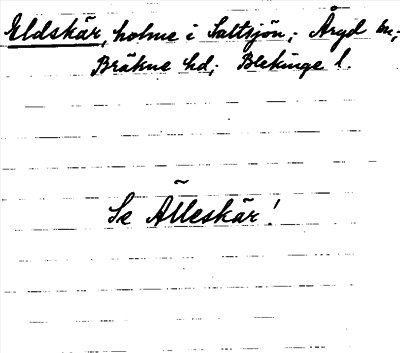 Eldskär, holme i Saltsjön; Åryd sn;
Bräkne hd; Blekinge l.
~
Se Älleskär!